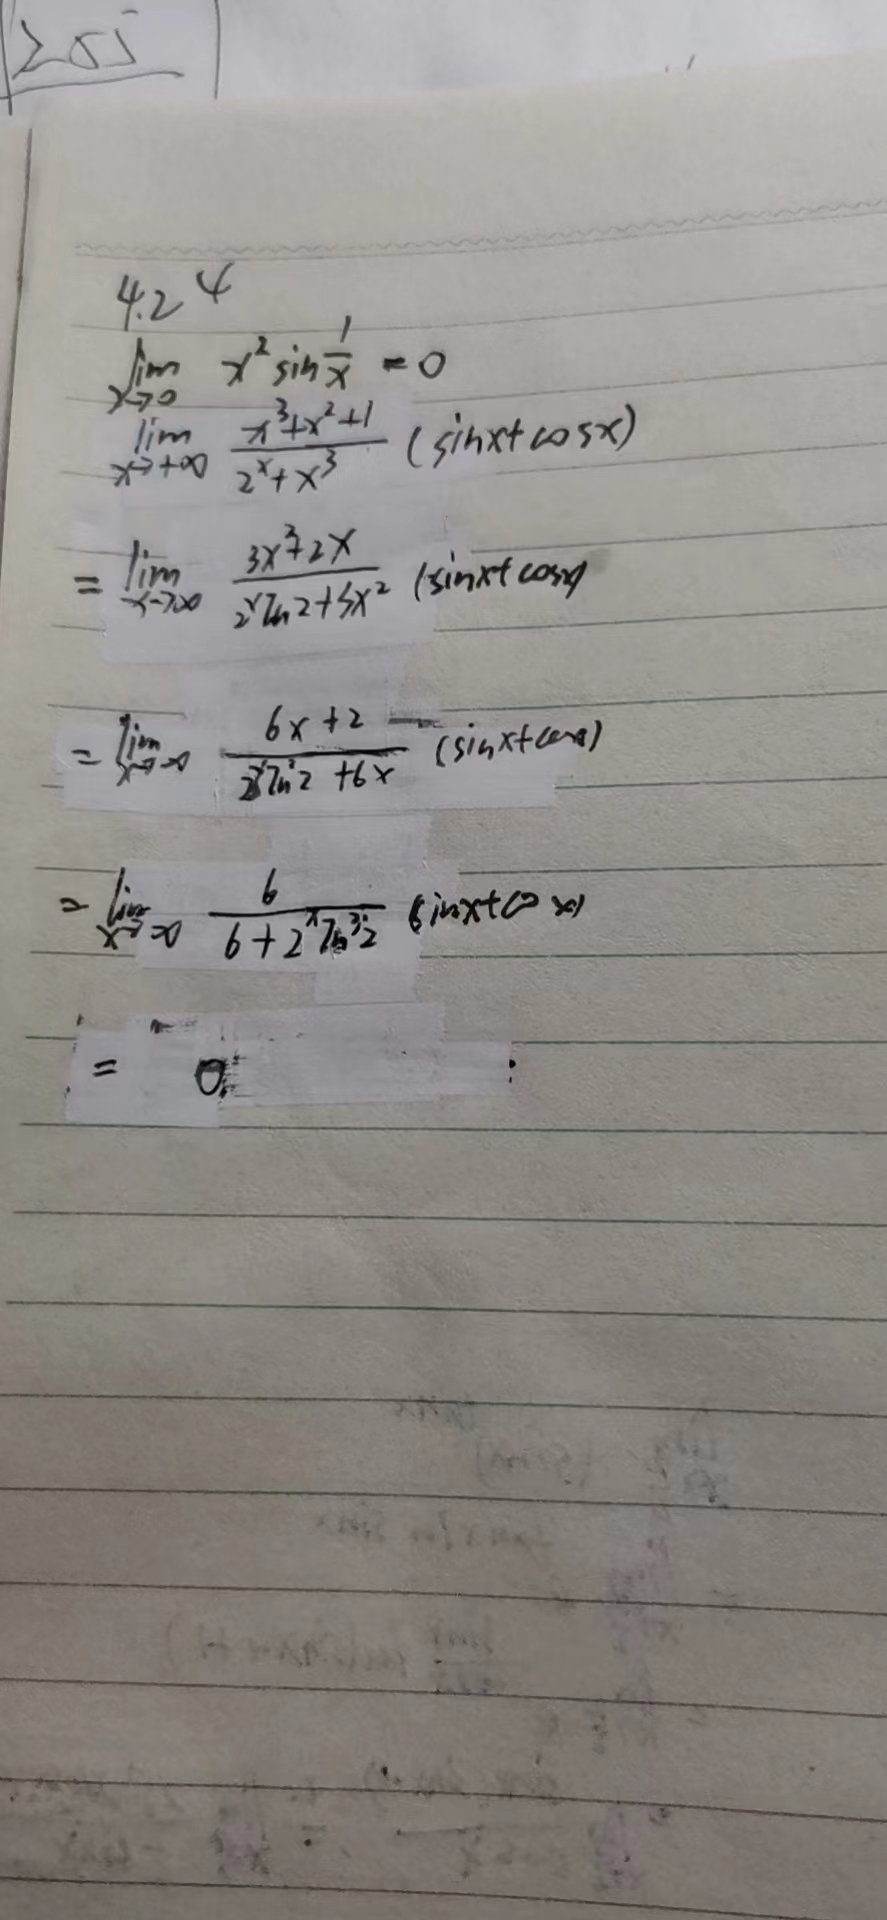 4.2 4
lim x→0 x² sin 1/x = 0
lim x→+∞ (x³+x²+1)/(2ˣ+x³) (sinx+cosx)
= lim x→∞ (3x²+2x)/(2ˣln2+3x²) (sinx+cosx)
= lim x→∞ (6x+2)/(2ˣln²2+6x) (sinx+cosx)
= lim x→∞ 6/(6+2ˣln³2) (sinx+cosx)
= 0